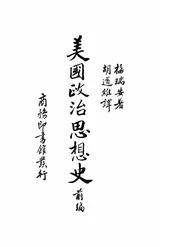 梅瑞安著
胡道維譯
美國政治思想史 前編
商務印書館發行